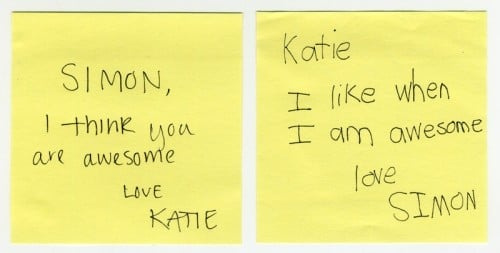 SIMON,
I think you
are awesome
LOVE
KATIE
Katie
I like when
I am awesome
love
SIMON